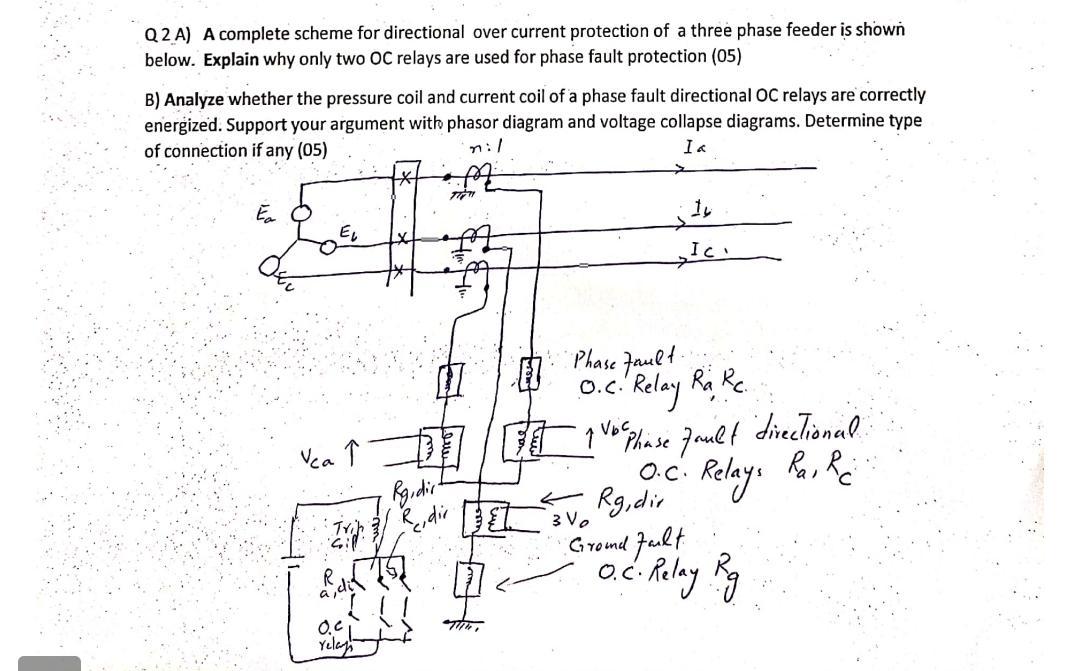 Q 2 A) A complete scheme for directional over current protection of a three phase feeder is shown
below. Explain why only two OC relays are used for phase fault protection (05)
B) Analyze whether the pressure coil and current coil of a phase fault directional OC relays are correctly
energized. Support your argument with phasor diagram and voltage collapse diagrams. Determine type
of connection if any (05)
n:1
Ia
Ea
Ib
Eb
Ic
Ec
Phase fault
O.C. Relay Ra, Rc
Vbc
Phase fault directional
O.C. Relays Ra, Rc
Vca
Rg,dir
Rg,dir
Rc,dir
3 V0
Trip
Coil
Ground fault
O.C. Relay Rg
R
a,dir
O.C
relays